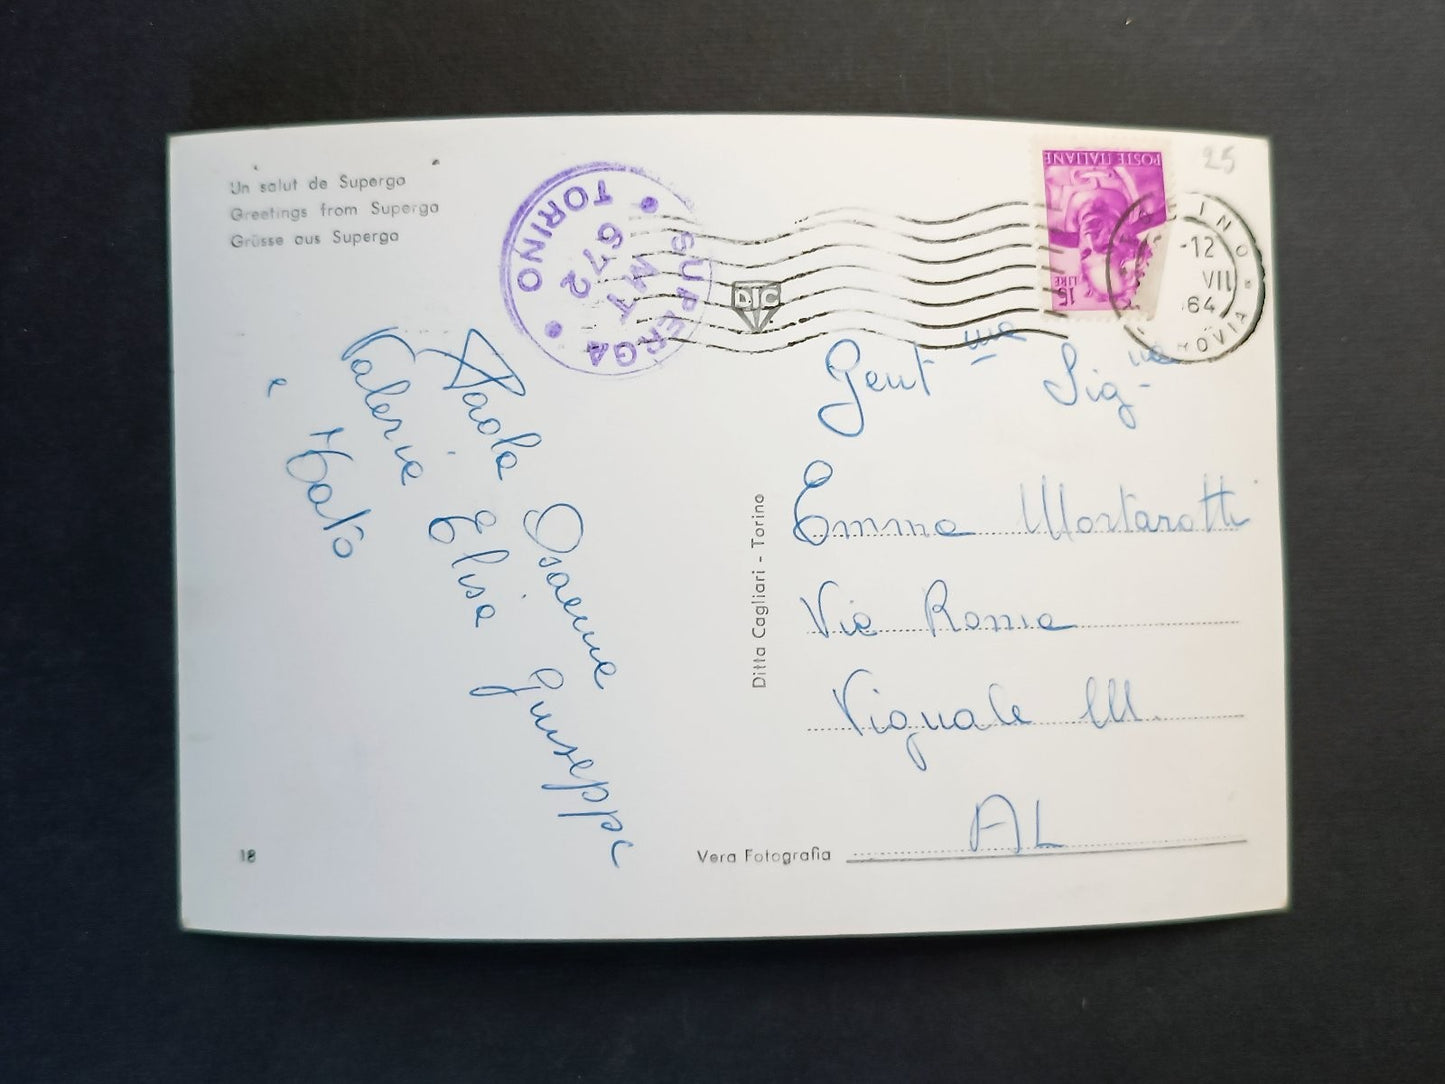 Un salut de Superga
Greetings from Superga
Grüsse aus Superga
SUPERGA
TORINO
672
MT
POSTE ITALIANE
LIRE
15
25
-12
VII
64
Gent ma Sig-na
Emma Mortarotti
Via Roma
Vignale M.
AL
Paola Osanna
Valeria Elisa Giuseppe
e
Ditta Cagliari - Torino
Vera Fotografia
18